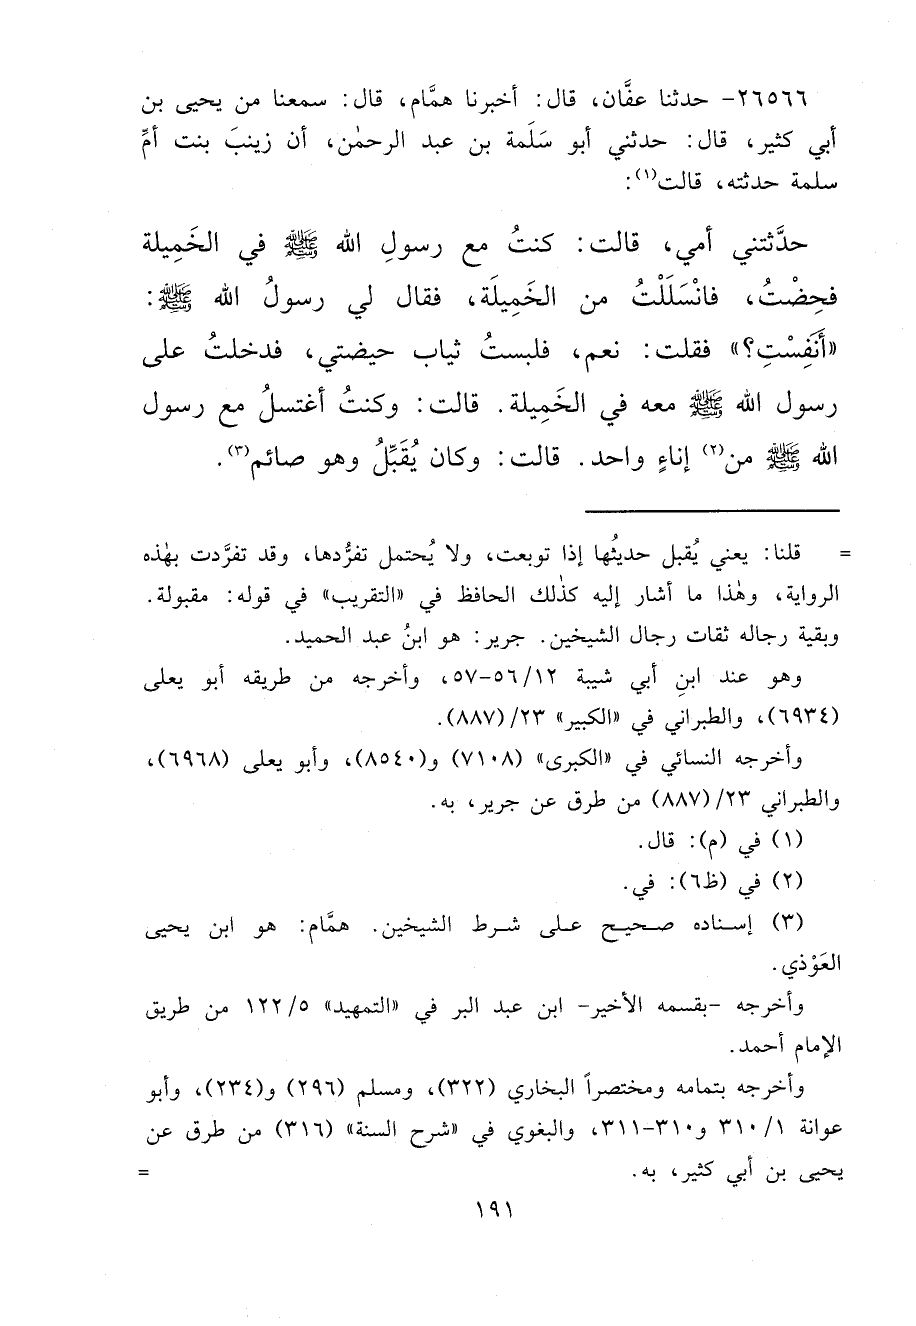 ٢٦٥٦٦- حدثنا عفَّان، قال: أخبرنا همَّام، قال: سمعنا من يحيى بن
أبي كثير، قال: حدثني أبو سَلَمة بن عبد الرحمٰن، أن زينبَ بنت أمِّ
سلمة حدثته، قالت(١):
حدَّثتني أمي، قالت: كنتُ مع رسولِ الله ﷺ في الخَمِيلة
فحِضْتُ، فانْسَلَلْتُ من الخَمِيلَة، فقال لي رسولُ الله ﷺ:
«أَنَفِسْتِ؟» فقلت: نعم، فلبستُ ثياب حيضتي، فدخلتُ على
رسول الله ﷺ معه في الخَمِيلة. قالت: وكنتُ أغتسلُ مع رسول
الله ﷺ من(٢) إناءٍ واحد. قالت: وكان يُقَبِّلُ وهو صائم(٣).
= قلنا: يعني يُقبل حديثُها إذا توبعت، ولا يُحتمل تفرُّدها، وقد تفرَّدت بهٰذه
الرواية، وهٰذا ما أشار إليه كذٰلك الحافظ في «التقريب» في قوله: مقبولة.
وبقية رجاله ثقات رجال الشيخين. جرير: هو ابنُ عبد الحميد.
وهو عند ابنِ أبي شيبة ١٢/ ٥٦-٥٧، وأخرجه من طريقه أبو يعلى
(٦٩٣٤)، والطبراني في «الكبير» ٢٣/ (٨٨٧).
وأخرجه النسائي في «الكبرى» (٧١٠٨) و(٨٥٤٠)، وأبو يعلى (٦٩٦٨)،
والطبراني ٢٣/ (٨٨٧) من طرق عن جرير، به.
(١) في (م): قال.
(٢) في (ظ٦): في.
(٣) إسناده صحيح على شرط الشيخين. همَّام: هو ابن يحيى
العَوْذي.
وأخرجه -بقسمه الأخير- ابن عبد البر في «التمهيد» ٥/ ١٢٢ من طريق
الإمام أحمد.
وأخرجه بتمامه ومختصراً البخاري (٣٢٢)، ومسلم (٢٩٦) و(٢٣٤)، وأبو
عوانة ١/ ٣١٠ و٣١٠-٣١١، والبغوي في «شرح السنة» (٣١٦) من طرق عن
يحيى بن أبي كثير، به. =
١٩١